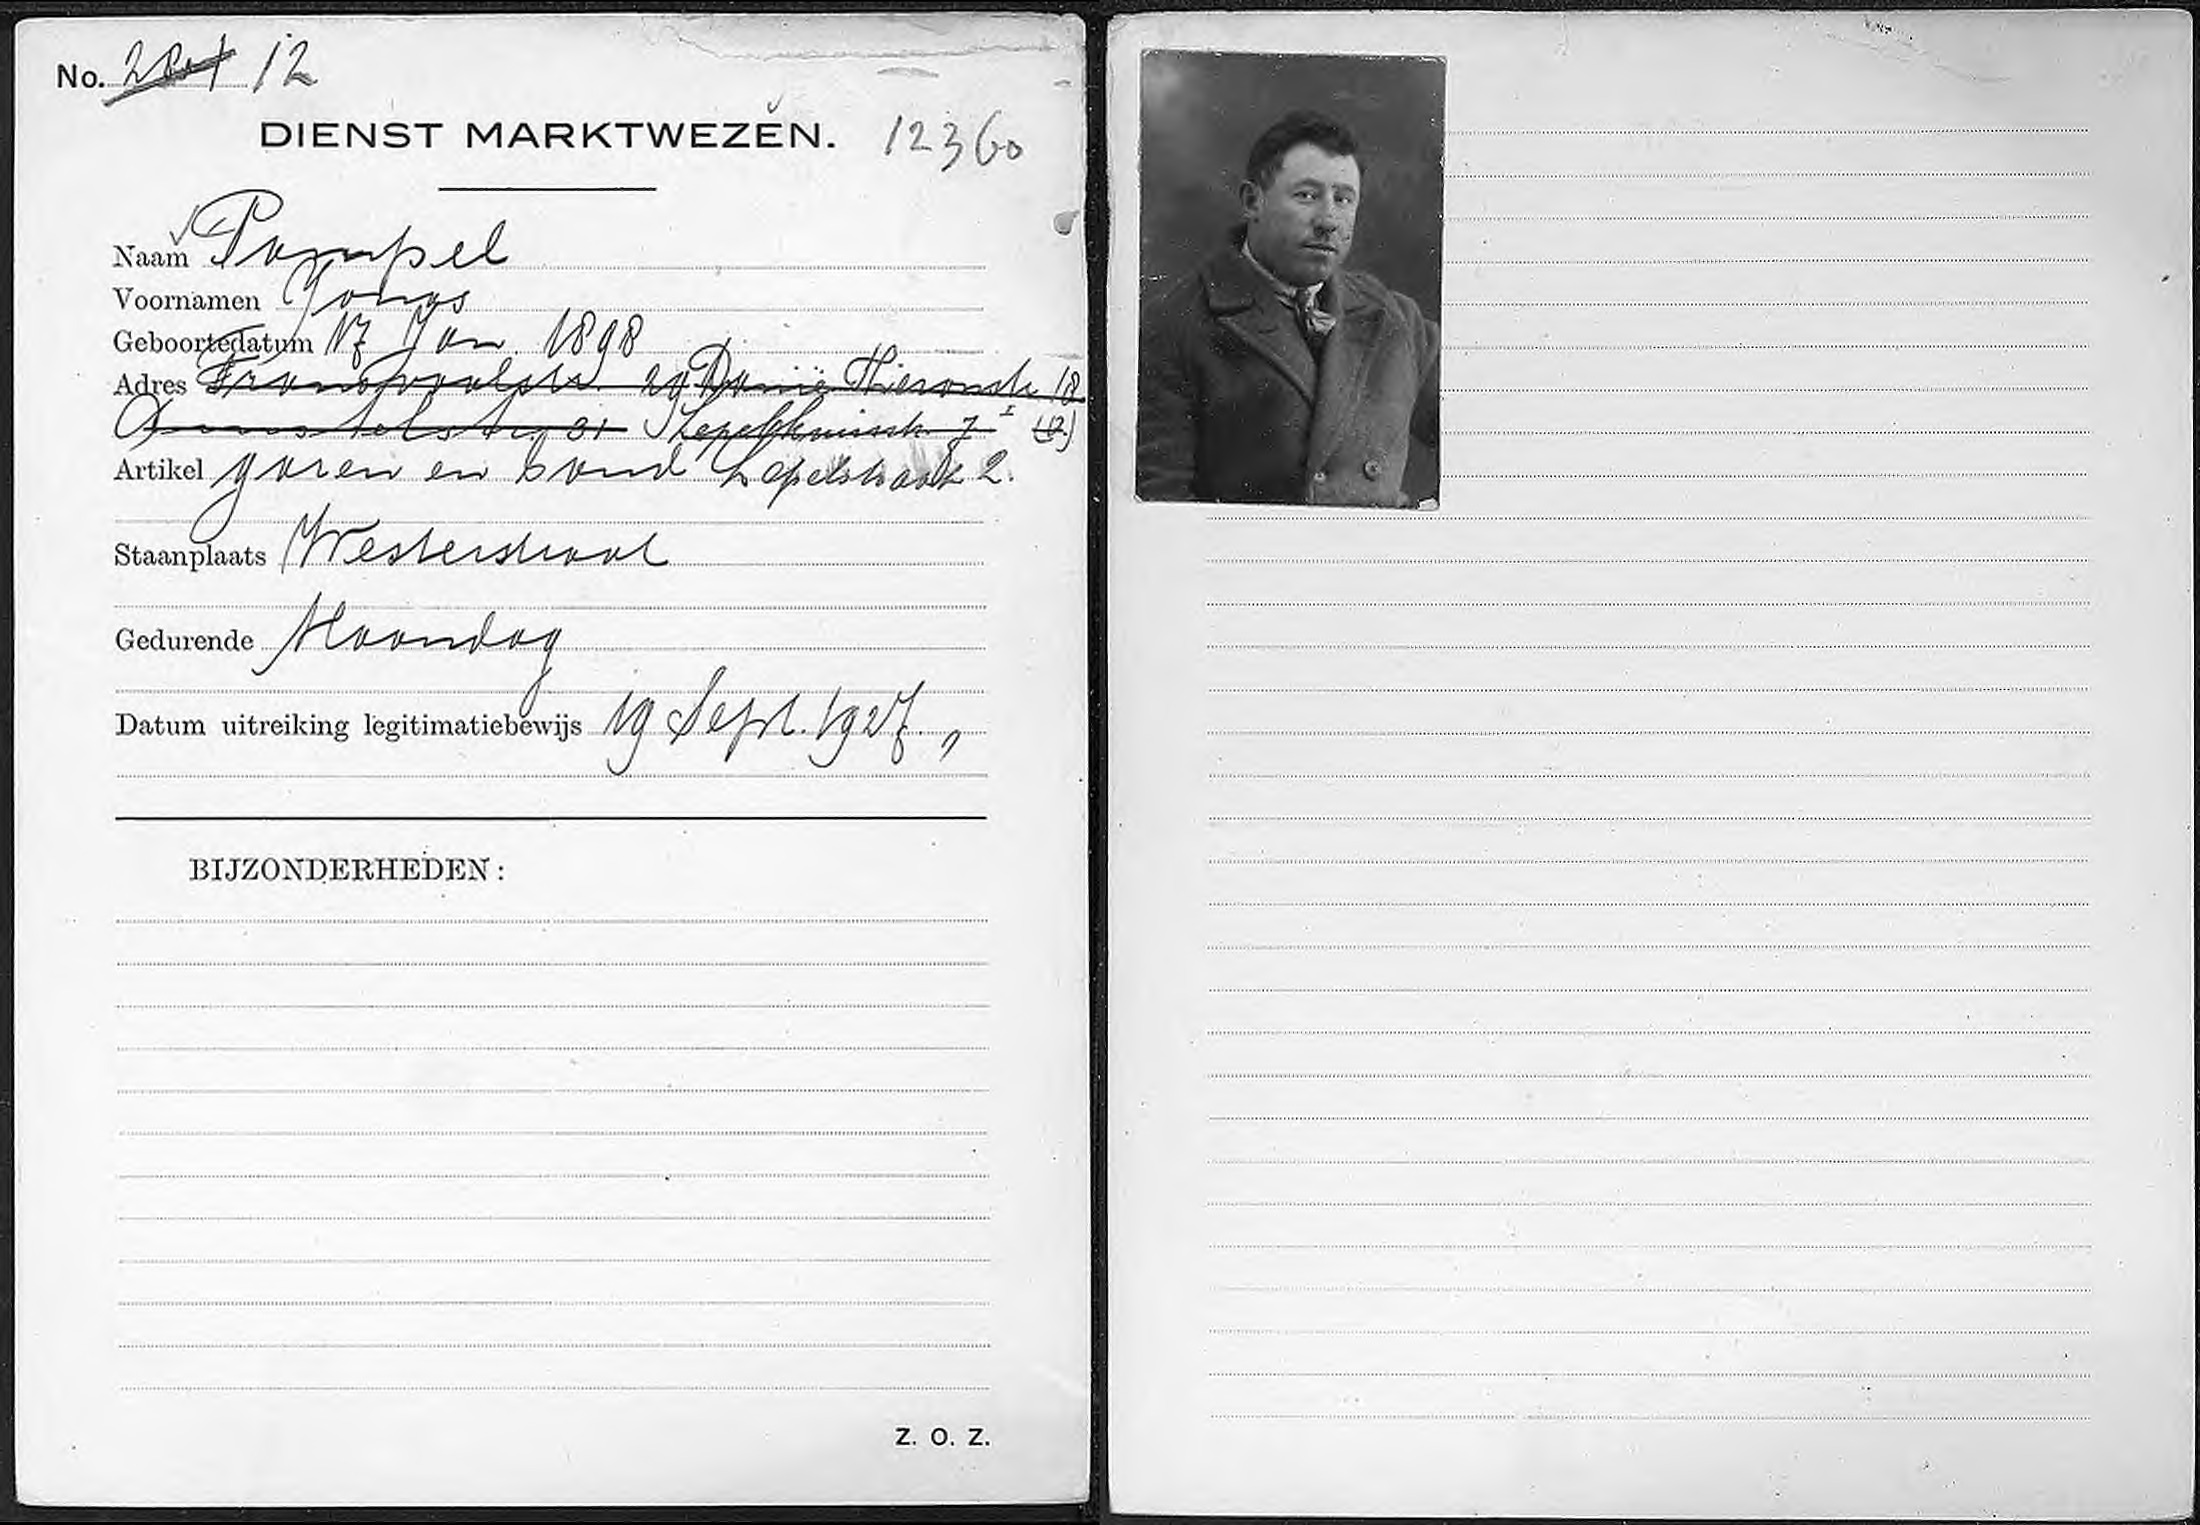 No. 12
DIENST MARKTWEZEN. 12360
Naam Pompel
Voornamen Jonas
Geboortedatum 17 Jan 1898
Adres Transvaalstr. 29 Danië Thieronstr 18
Amstelstr. 31 Lepelkruisstr. 7 I
Artikel garen en band Lepelstraat 2.
Staanplaats Westerstraat
Gedurende Maandag
Datum uitreiking legitimatiebewijs 19 Sept. 1927.
BIJZONDERHEDEN:
Z. O. Z.